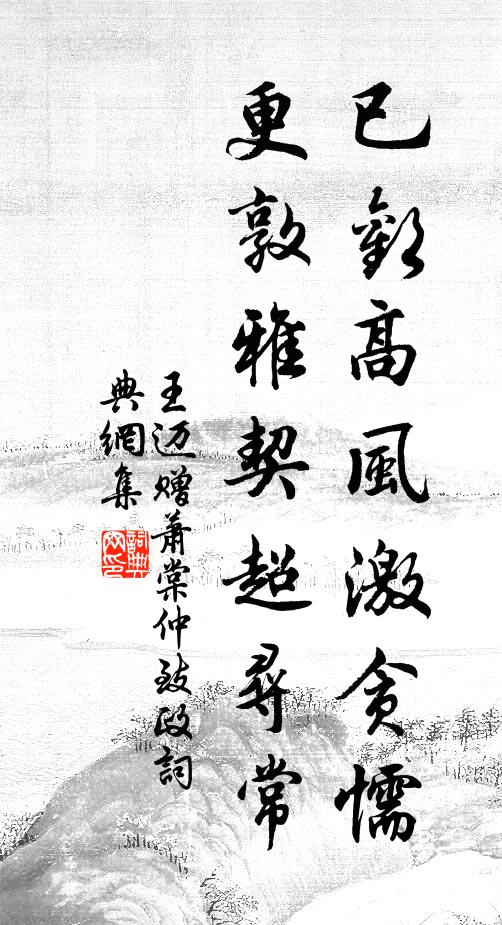 已觀高風激貪懦
更敦雅契超尋常
王迈贈蕭棠仲致政詞
典網集
詞典網印